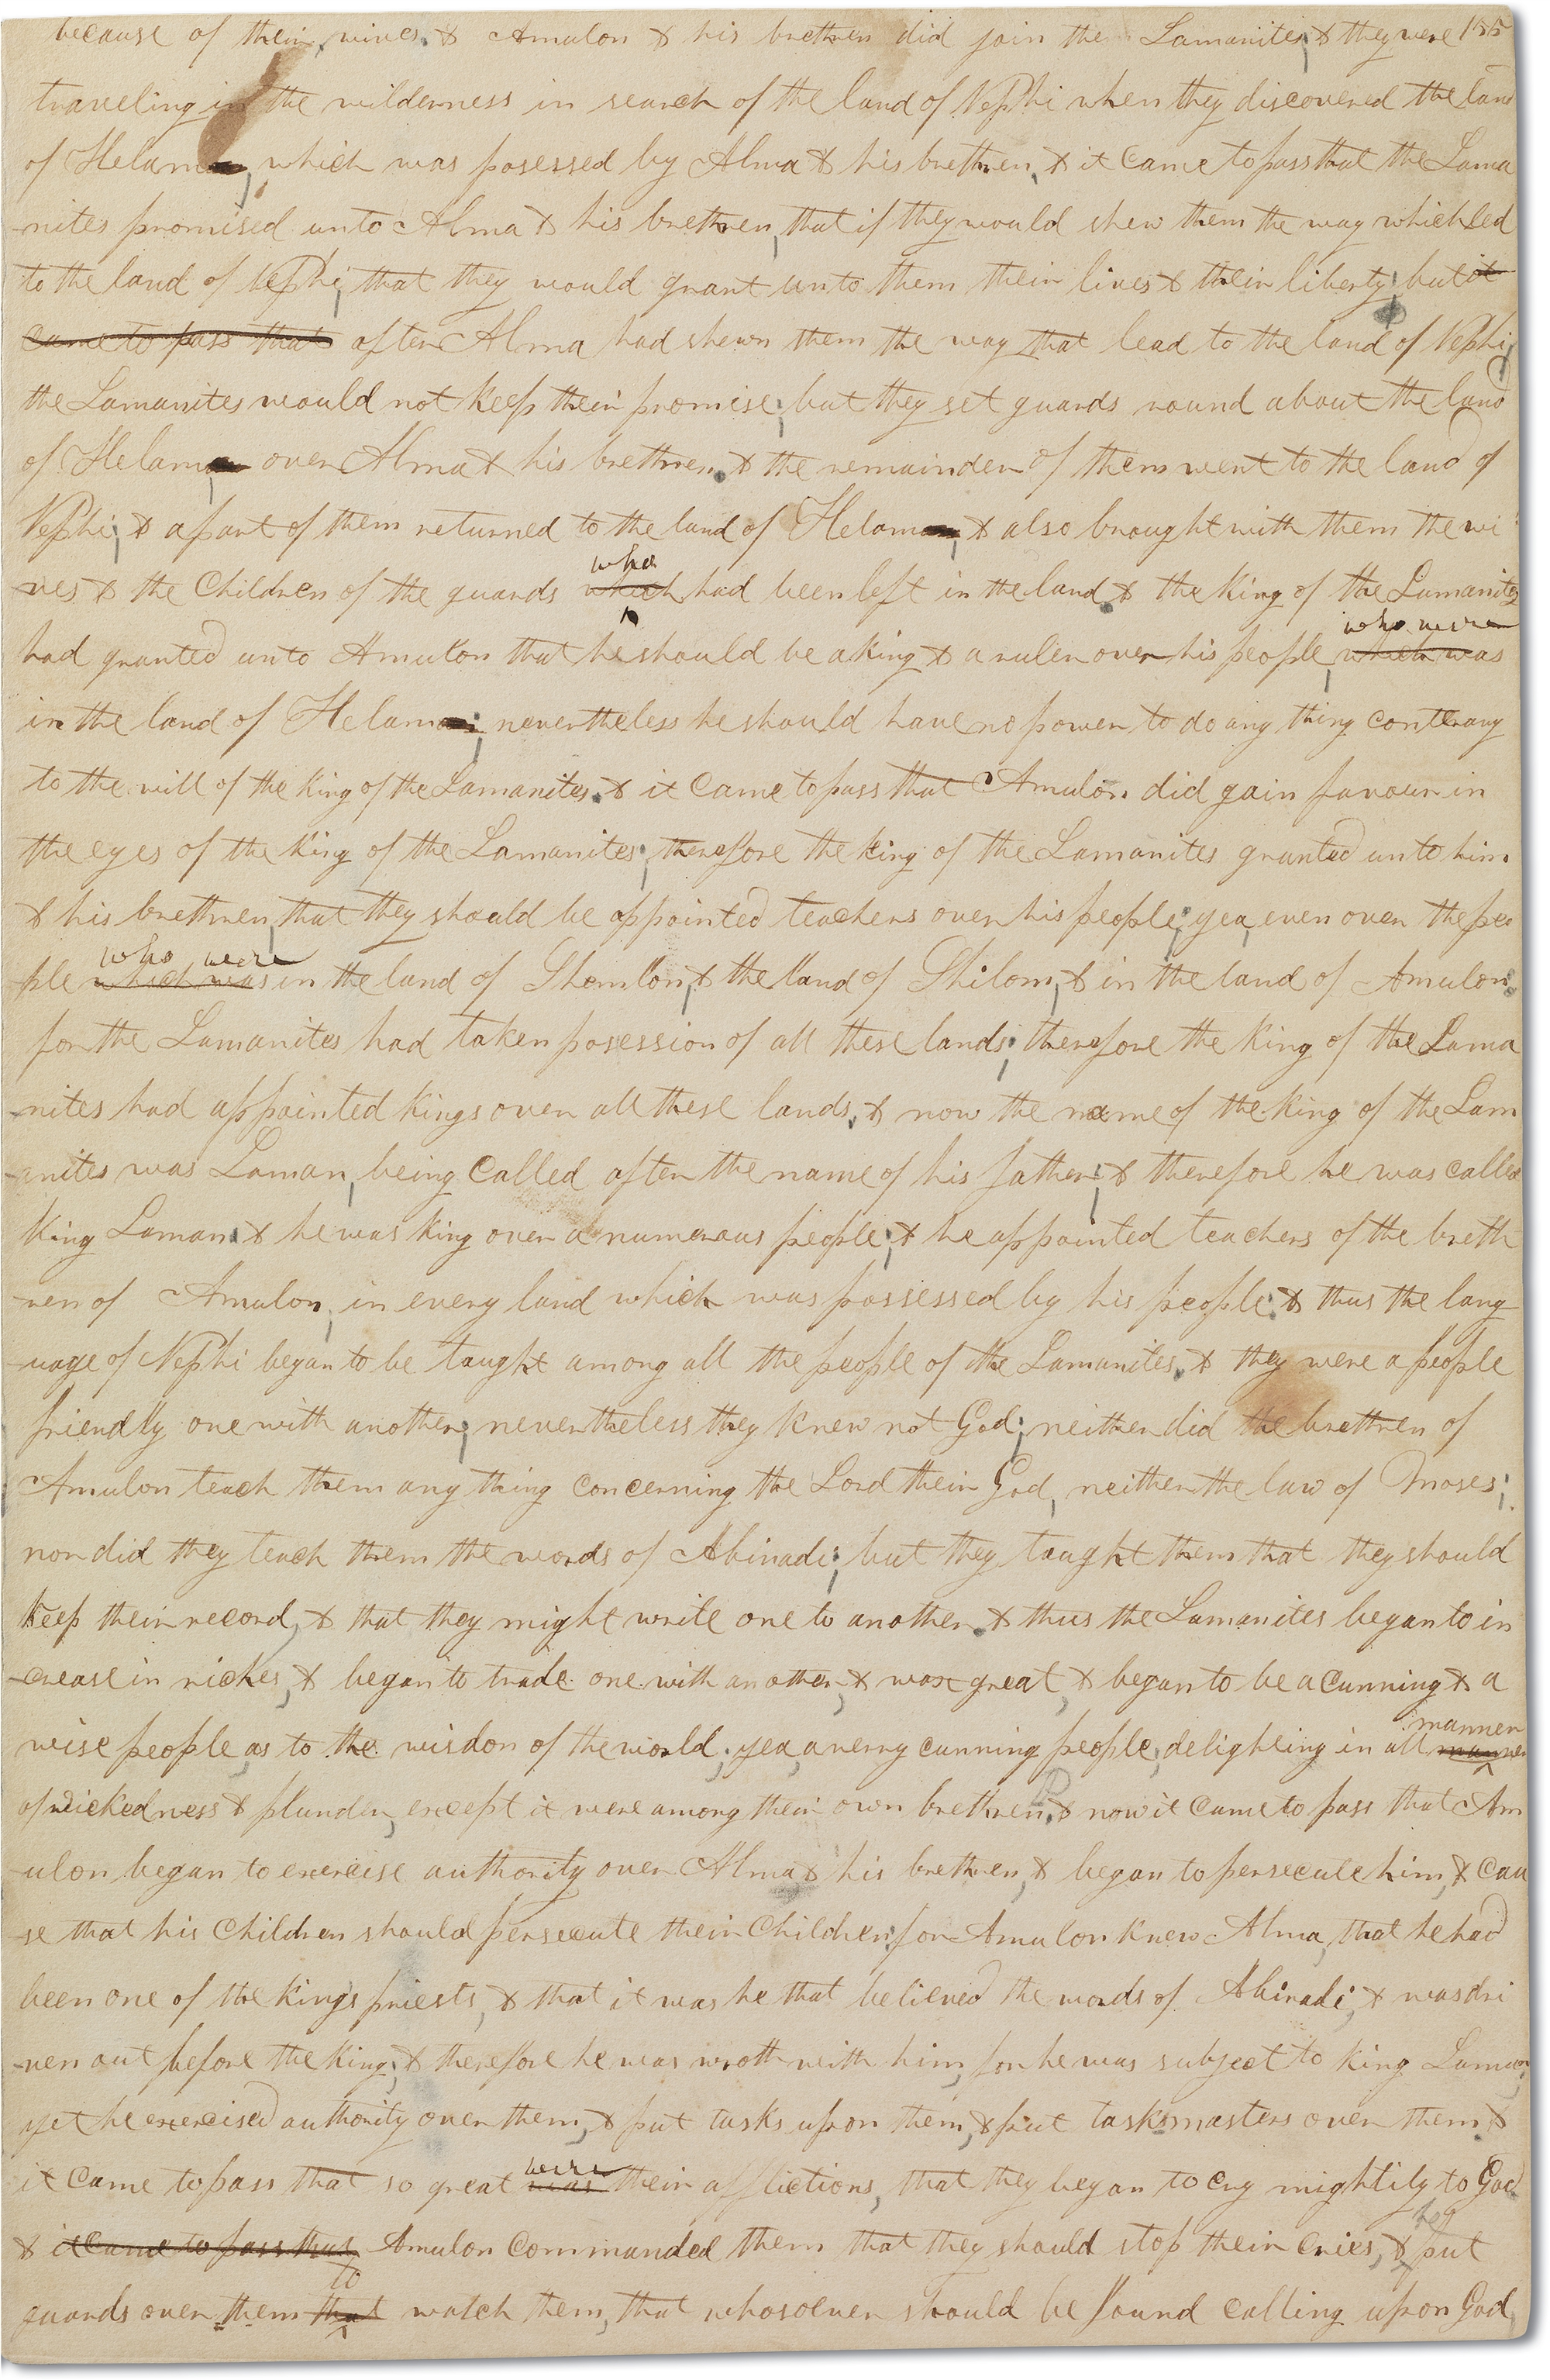 because of their wives. & Amulon & his brethren did join the Lamanites; & they were 155
traveling in the wilderness in search of the land of Nephi when they discovered the land
of Helam, which was posessed by Alma & his brethren, & it came to pass that the Lama
-nites promised unto Alma & his brethren, that if they would shew them the way which led
to the land of Nephi, that they would grant unto them their lives & their liberty; but it
came to pass that after Alma had shewn them the way that lead to the land of Nephi,
the Lamanites would not keep their promise; but they set guards round about the land
of Helam, over Alma & his brethren. & the remainder of them went to the land of
Nephi; & a part of them returned to the land of Helam, & also brought with them the wi
who
ves & the Children of the guards which had been left in the land. & the King of the Lamanites
who were
had granted unto Amulon that he should be a King & a ruler over his people, which was
in the land of Helam; nevertheless he should have no power to do any thing conterary
to the will of the King of the Lamanites. & it came to pass that Amulon did gain favour in
the eyes of the King of the Lamanites; therefore the King of the Lamanites granted unto him
& his brethren, that they should be appointed teachers over his people; yea, even over the peo
who were
ple which was in the land of Shemlon, & the land of Shilom, & in the land of Amulon.
for the Lamanites had taken posession of all these lands; therefore the King of the Lama
-nites had appointed Kings over all these lands. & now the name of the King of the Lam
-anites was Laman, being called after the name of his father; & therefore he was called
King Laman. & he was king over a numerous people; & he appointed teachers of the breth
-ren of Amulon, in every land which was possessed by his people: & thus the lang
-uage of Nephi began to be taught among all the people of the Lamanites. & they were a people
friendly one with another; nevertheless they knew not God; neither did the brethren of
Amulon teach them any thing concerning the Lord their God, neither the law of Moses;
nor did they teach them the words of Abinadi; but they taught them that they should
Keep their record, & that they might write one to another. & thus the Lamanites began to in
-crease in riches, & began to trade one with another, & wax great, & began to be a cunning & a
manner
wise people, as to the wisdom of the world; yea, a very cunning people, delighting in all manner
of wickedness & plunder, except it were among their own brethren. & now it came to pass that Am
-ulon began to exercise authority over Alma & his brethren, & began to persecute him, & cau
-se that his Children should persecute their Children: for Amulon knew Alma, that he had
been one of the kings priests, & that it was he that believed the words of Abinadi, & was dri
-ven out before the King; & therefore he was wroth with him, for he was subject to king Laman,
yet he exercised authority over them, & put tasks upon them, & put tasksmasters over them. &
were
it came to pass that so great was their afflictions, that they began to cry mightily to God
he
& it came to pass that Amulon commanded them that they should stop their cries, & put
to
guards over them that watch them, that whosoever should be found calling upon God,